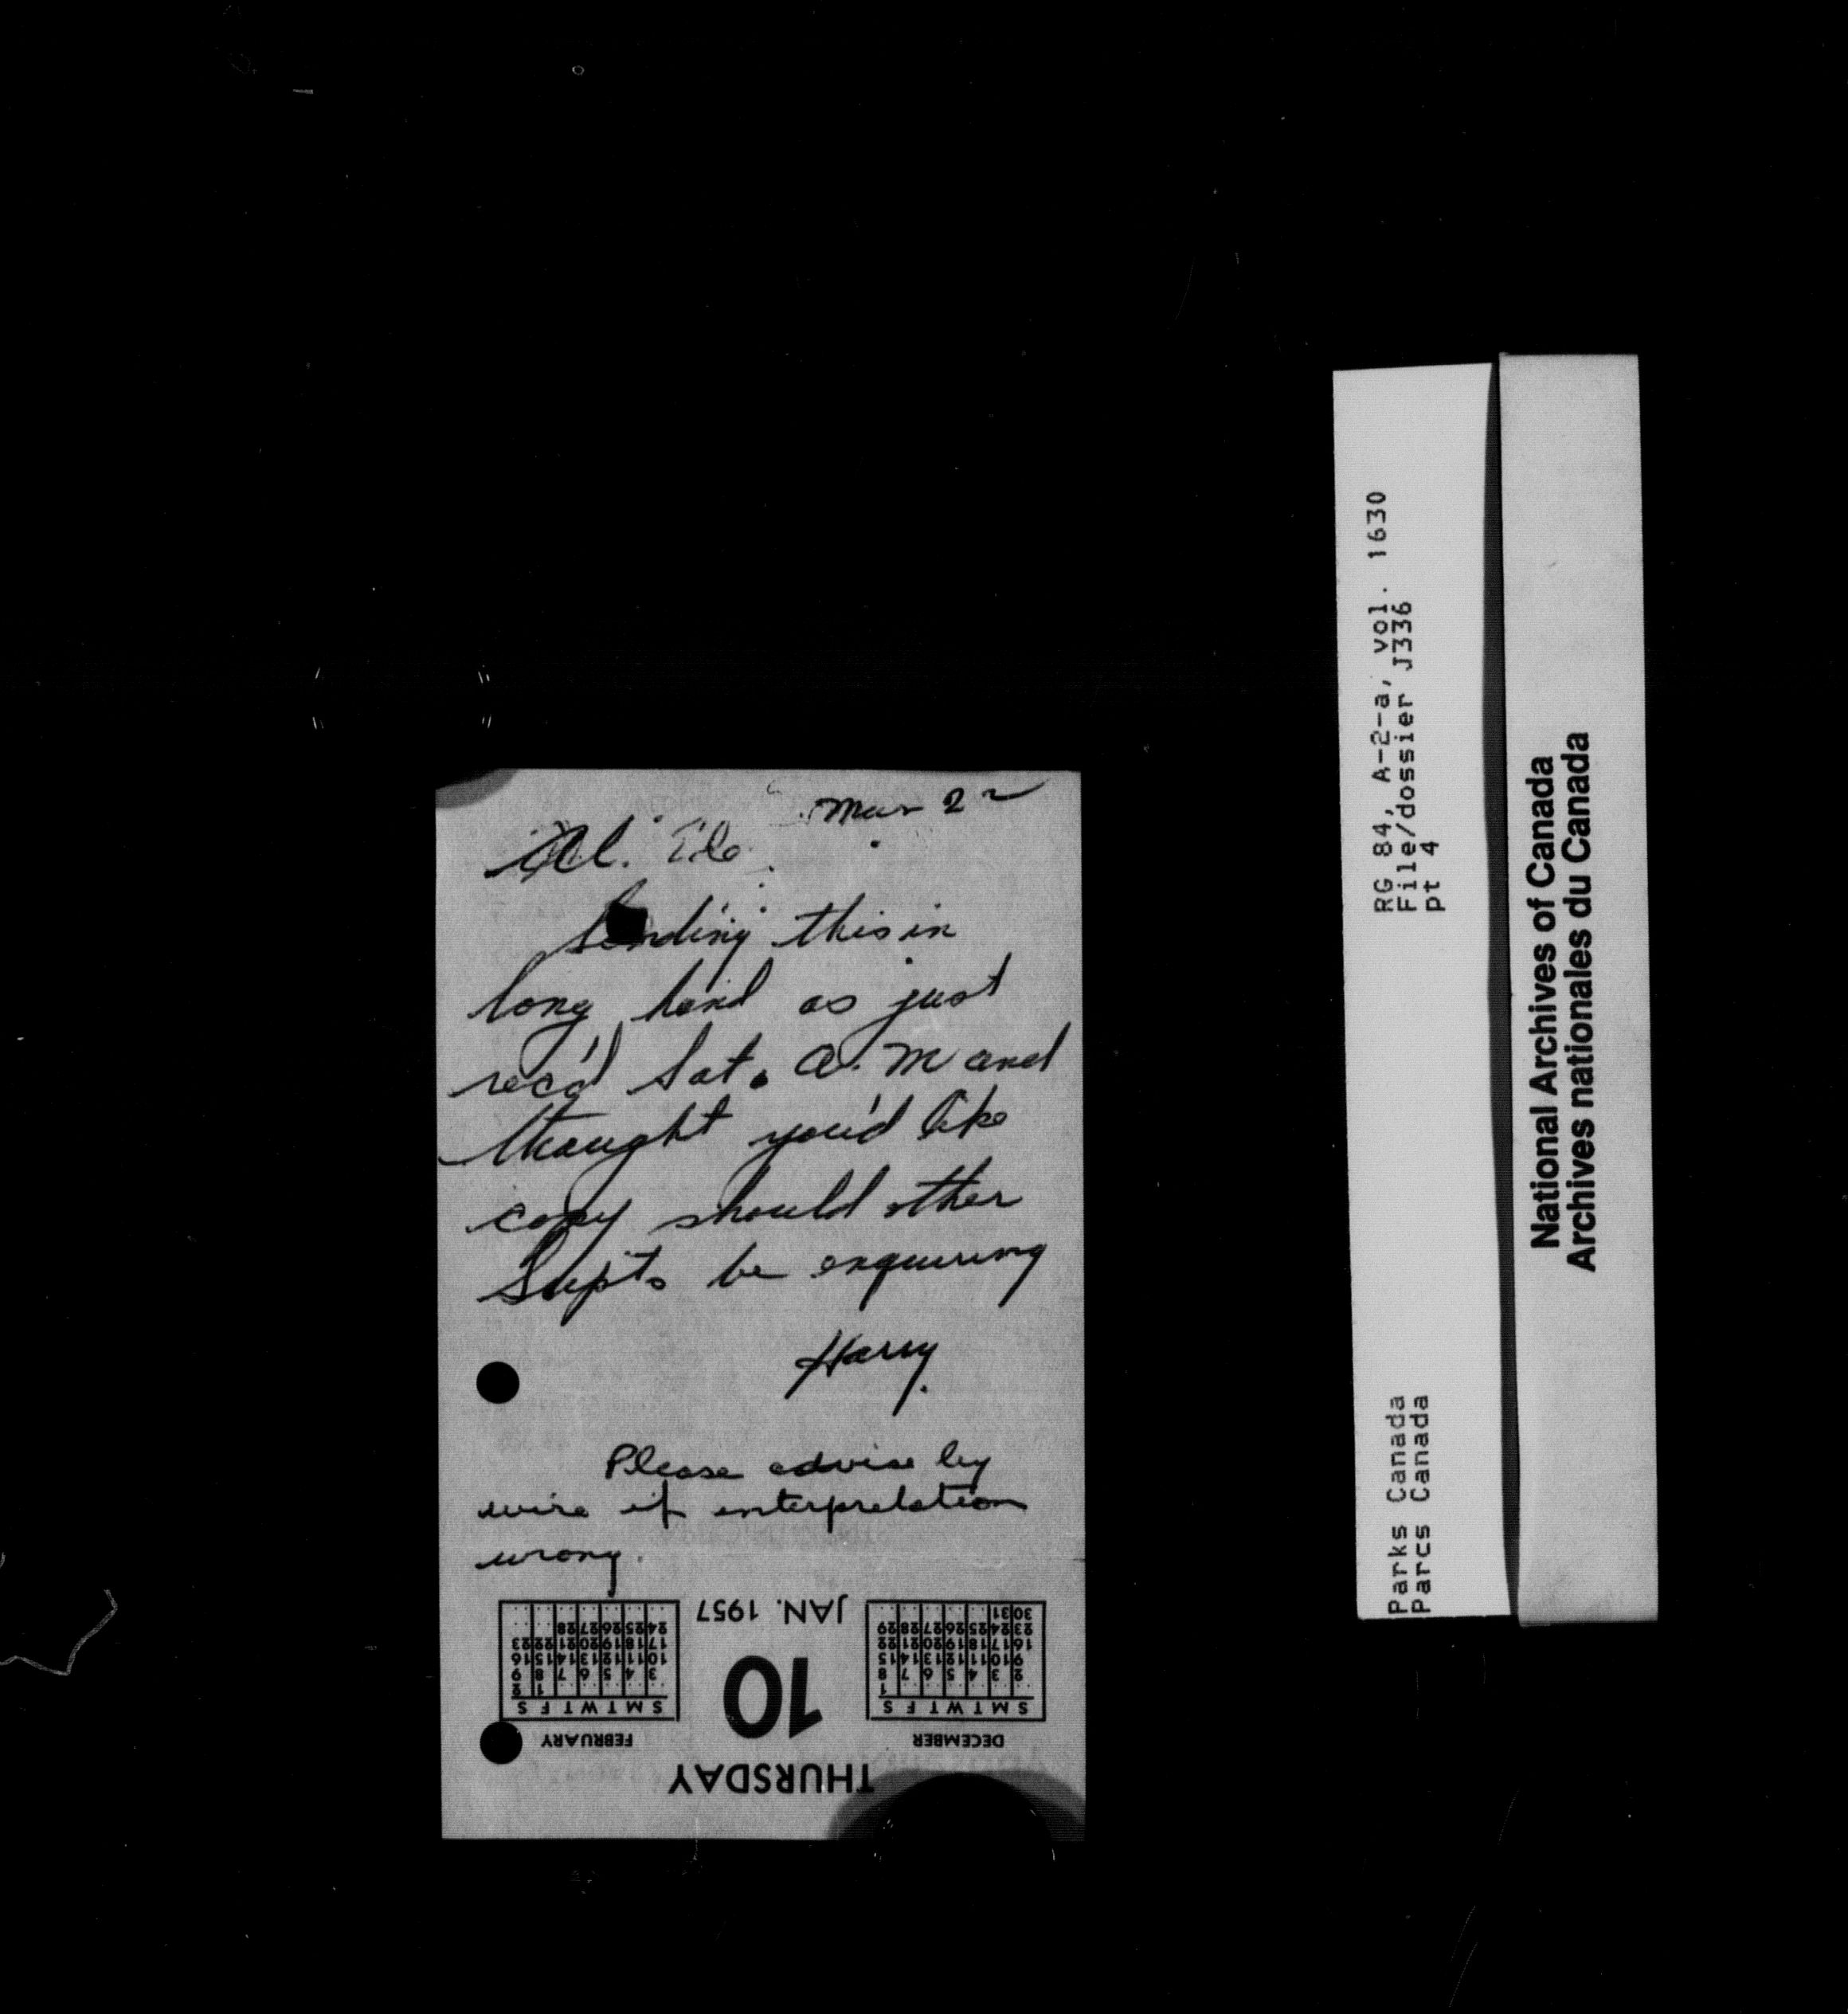 Mar 2
Al.
Sending this in
long hand as just
rec'd Sat. A.M and
thought you'd like
copy should other
Supts be enquiring
Harry.
Please advise by
wire if interpretation
wrong.
JAN. 1957
10
THURSDAY
DECEMBER
S M T W T F S
1
2 3 4 5 6 7 8
9 10 11 12 13 14 15
16 17 18 19 20 21 22
23 24 25 26 27 28 29
30 31
FEBRUARY
S M T W T F S
1 2
3 4 5 6 7 8 9
10 11 12 13 14 15 16
17 18 19 20 21 22 23
24 25 26 27 28
RG 84, A-2-a, vol. 1630
File/dossier J336
pt 4
Parks Canada
Parcs Canada
National Archives of Canada
Archives nationales du Canada